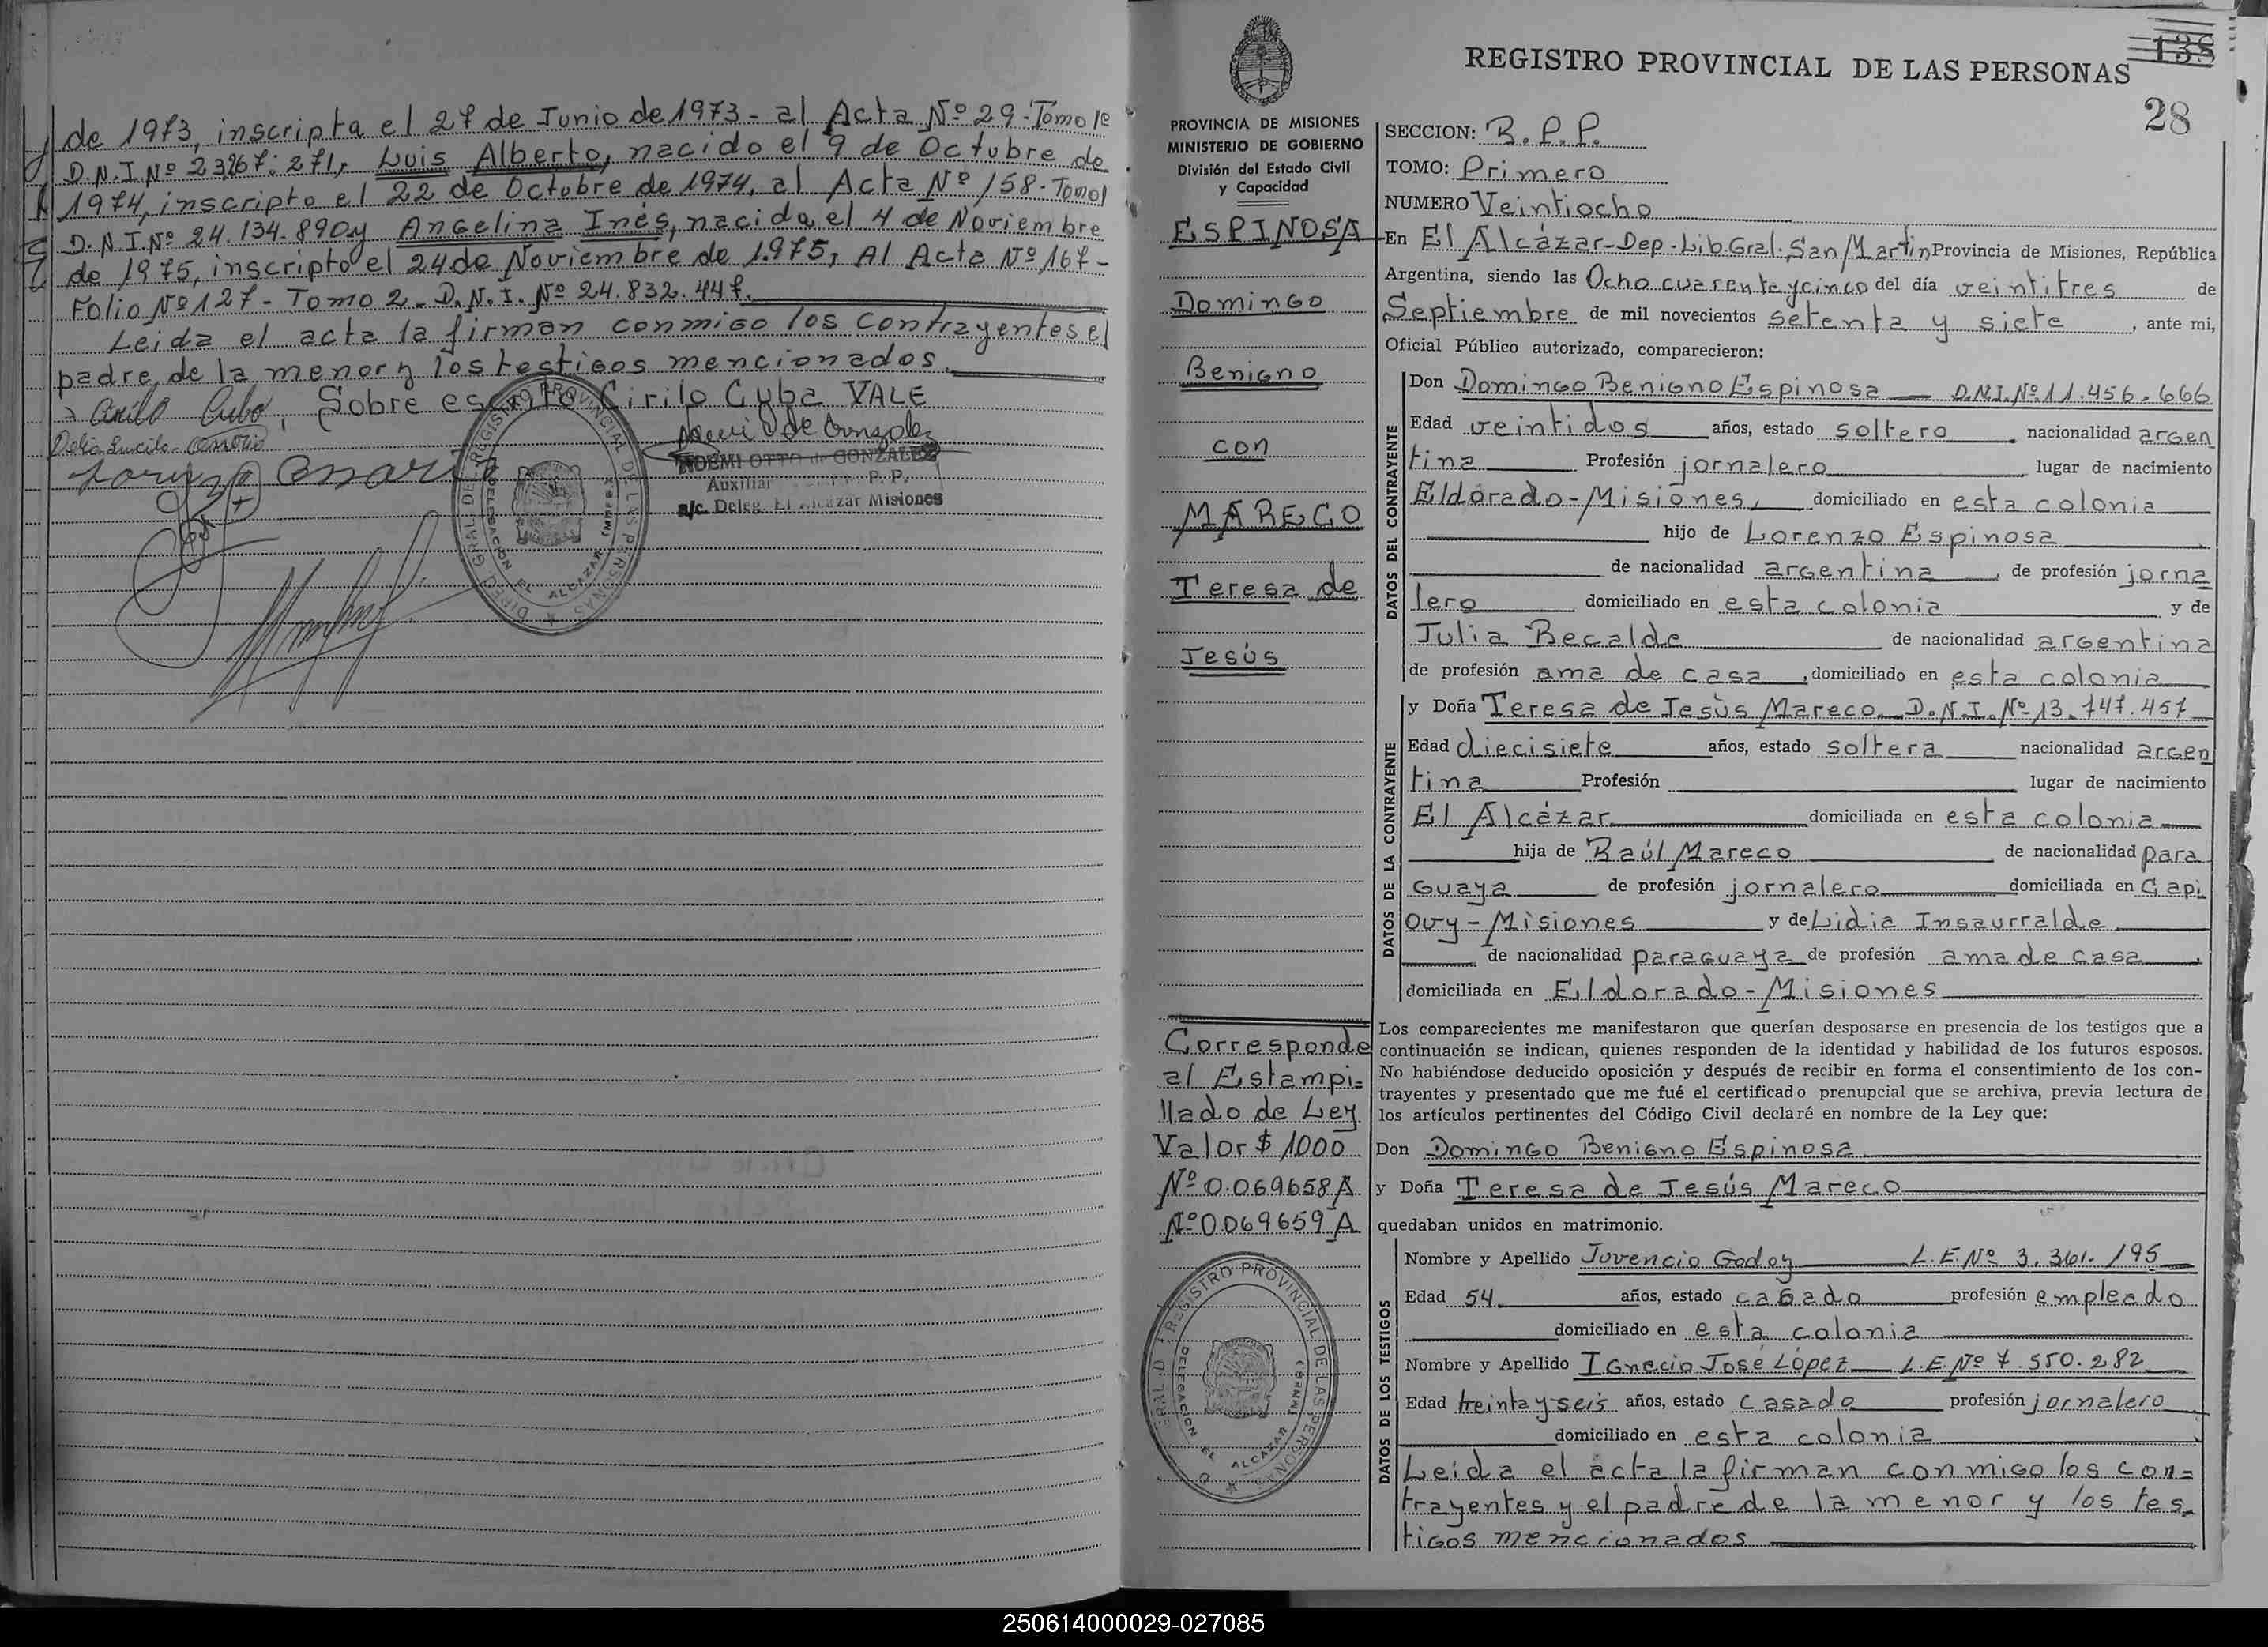 de 1973, inscripta el 27 de Junio de 1973 - al Acta Nº 29 - Tomo 1º
D.N.I. Nº 23.267.271, Luis Alberto, nacido el 9 de Octubre de
1974, inscripto el 22 de Octubre de 1974, al Acta Nº 158 - Tomo 1
D.N.I. Nº 24.134.890 y Angelina Inés, nacida el 4 de Noviembre
de 1975, inscripto el 24 de Noviembre de 1.975, Al Acta Nº 167 -
Folio Nº 127 - Tomo 2 - D.N.I. Nº 24.832.447.
Leida el acta la firman conmigo los contrayentes el
padre de la menor y los testigos mencionados.
Cirilo Cuba, Sobre escrito Cirilo Cuba VALE
Delia Lucila
NOEMI OTTO de GONZALEZ
Auxiliar P. P.
a/c. Deleg. El Alcázar Misiones
DIREC. GRAL. DE REGISTRO PROVINCIAL DE LAS PERSONAS
DELEGACION EL ALCAZAR (MNES.)
REGISTRO PROVINCIAL DE LAS PERSONAS
138
28
PROVINCIA DE MISIONES
MINISTERIO DE GOBIERNO
División del Estado Civil
y Capacidad
ESPINOSA
Domingo
Benigno
con
MARECO
Teresa de
Jesús
Corresponde
al Estampi=
llado de Ley
Valor $ 1000
Nº 0.069658 A
Nº 0069659 A
REGISTRO PROVINCIAL DE LAS PERSONAS
DELEGACION EL ALCAZAR (MNES.)
SECCION: R.P.P.
TOMO: Primero
NUMERO Veintiocho
En El Alcázar - Dep. Lib. Gral. San Martin Provincia de Misiones, República
Argentina, siendo las Ocho cuarenta y cinco del día veintitres de
Septiembre de mil novecientos setenta y siete, ante mi,
Oficial Público autorizado, comparecieron:
DATOS DEL CONTRAYENTE
Don Domingo Benigno Espinosa — D.N.I. Nº 11.456.666
Edad veintidos años, estado soltero nacionalidad argen
tina Profesión jornalero lugar de nacimiento
Eldorado - Misiones, domiciliado en esta colonia
hijo de Lorenzo Espinosa
de nacionalidad argentina, de profesión jorna
lero domiciliado en esta colonia y de
Julia Recalde de nacionalidad argentina
de profesión ama de casa, domiciliado en esta colonia
DATOS DE LA CONTRAYENTE
y Doña Teresa de Jesùs Mareco — D.N.I. Nº 13.747.457
Edad diecisiete años, estado soltera nacionalidad argen
tina Profesión lugar de nacimiento
El Alcázar domiciliada en esta colonia
hija de Raúl Mareco de nacionalidad para
guaya de profesión jornalero domiciliada en Capi
ovy - Misiones y de Lidia Insaurralde
de nacionalidad paraguaya de profesión ama de casa,
domiciliada en Eldorado - Misiones
Los comparecientes me manifestaron que querían desposarse en presencia de los testigos que a
continuación se indican, quienes responden de la identidad y habilidad de los futuros esposos.
No habiéndose deducido oposición y después de recibir en forma el consentimiento de los con-
trayentes y presentado que me fué el certificado prenupcial que se archiva, previa lectura de
los artículos pertinentes del Código Civil declaré en nombre de la Ley que:
Don Domingo Benigno Espinosa
y Doña Teresa de Jesús Mareco
quedaban unidos en matrimonio.
DATOS DE LOS TESTIGOS
Nombre y Apellido Juvencio Godoy — L.E. Nº 3.361.195
Edad 54 años, estado casado profesión empleado
domiciliado en esta colonia
Nombre y Apellido Ignacio José López — L.E. Nº 7.550.282
Edad treinta y seis años, estado casado profesión jornalero
domiciliado en esta colonia
Leida el acta la firman conmigo los con=
trayentes y el padre de la menor y los tes=
tigos mencionados
250614000029-027085